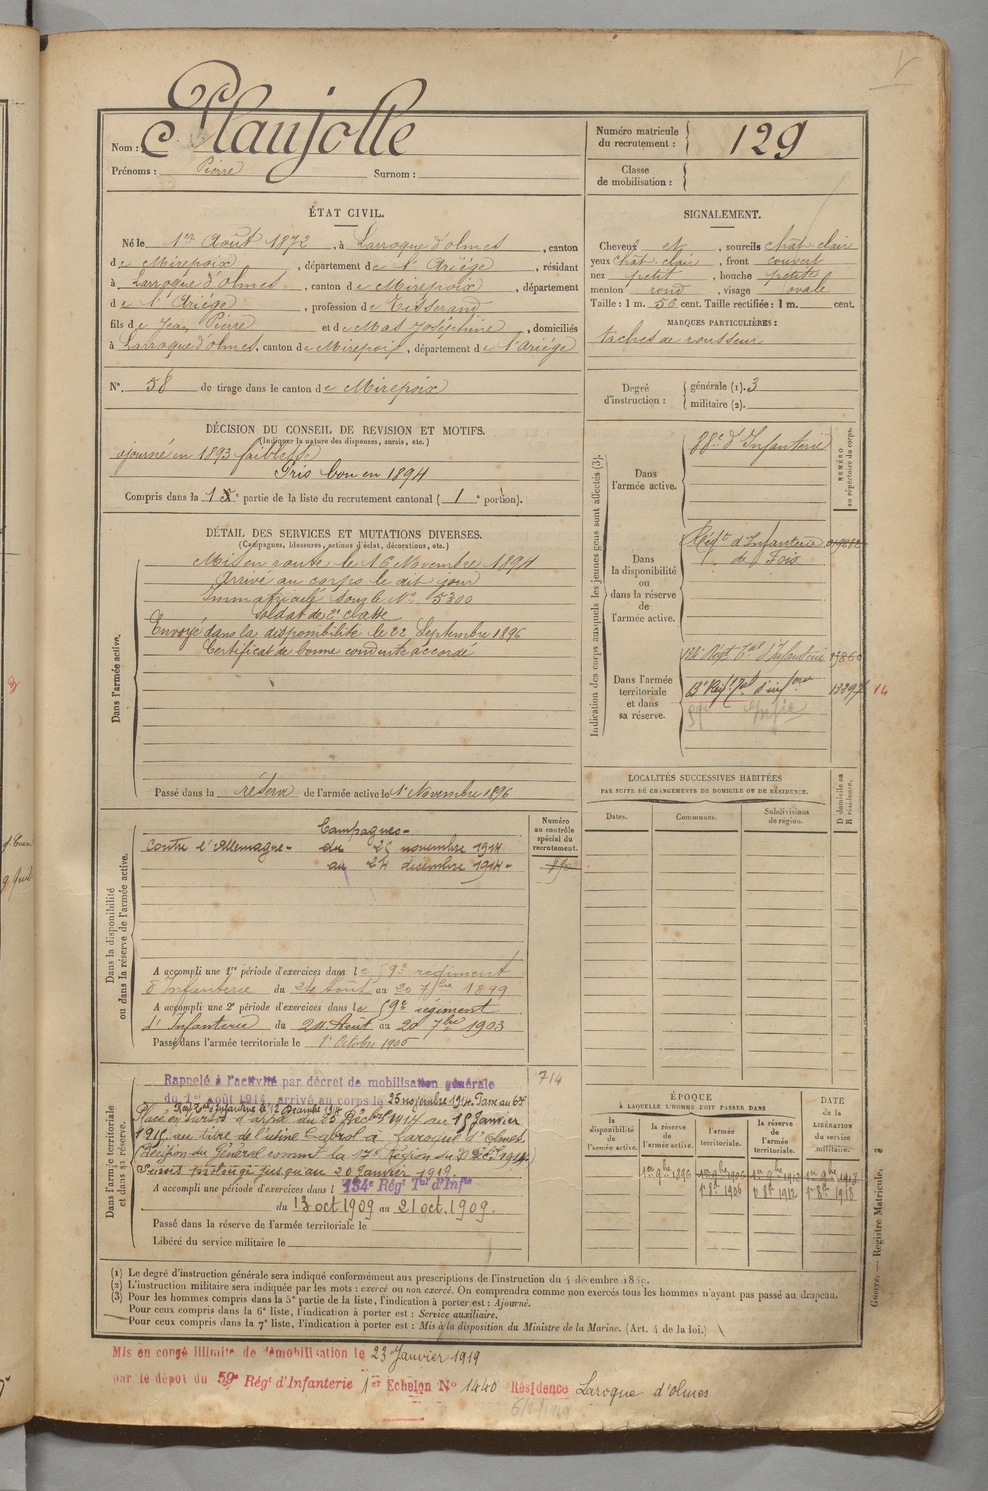 Nom : Plaujolle
Prénoms : Pierre Surnom :
Numéro matricule du recrutement : 129
Classe de mobilisation :
ÉTAT CIVIL.
Né le 1er Août 1872, à Larroque d'olmes, canton
de Mirepoix, département de l'Ariége, résidant
à Larroque d'olmes, canton de Mirepoix, département
de l'Ariége, profession de Tisserand
fils de Jean Pierre et de Mas Joséphine, domiciliés
à Larroque d'olmes, canton de Mirepoix, département de l'Ariége
N° 58 de tirage dans le canton de Mirepoix
SIGNALEMENT.
Cheveux et, sourcils chât-clair
yeux chât-clair, front couvert
nez petit, bouche petite
menton rond, visage ovale
Taille : 1 m. 56 cent. Taille rectifiée : 1 m. cent.
MARQUES PARTICULIÈRES :
taches de rousseur
Degré d'instruction : générale (1). 3
militaire (2).
DÉCISION DU CONSEIL DE REVISION ET MOTIFS.
(Indiquer la nature des dispenses, sursis, etc.)
ajourné en 1893 faiblesse
Pris bon en 1894
Compris dans la 1e partie de la liste du recrutement cantonal ( 1e portion).
DÉTAIL DES SERVICES ET MUTATIONS DIVERSES.
(Campagnes, blessures, actions d'éclat, décorations, etc.)
Dans l'armée active.
Mis en route le 16 Novembre 1894
Arrivé au corps le dit jour
Immatriculé sous le N° 5300
soldat de 2e classe
Envoyé dans la disponibilité le 22 Septembre 1896
Certificat de bonne conduite accordé
Passé dans la réserve de l'armée active le 1r Novembre 1896
Indication des corps auxquels les jeunes gens sont affectés (3).
NUMÉRO au répertoire du corps.
Dans l'armée active.
88e d'Infanterie
Dans la disponibilité ou dans la réserve de l'armée active.
Régt d'Infanterie
de Foix
Dans l'armée territoriale et dans sa réserve.
134 Régt Tal d'Infanterie
14
LOCALITÉS SUCCESSIVES HABITÉES
PAR SUITE DE CHANGEMENTS DE DOMICILE OU DE RÉSIDENCE.
Dates. Communes. Subdivisions de région.
D domicile ou R résidence.
Dans la disponibilité ou dans la réserve de l'armée active.
Numéro au contrôle spécial du recrutement.
Campagnes-
Contre l'Allemagne - du 25 novembre 1914
au 24 décembre 1914-
A accompli une 1re période d'exercices dans le 59e régiment
d'Infanterie du 24 Août au 20 7bre 1899
A accompli une 2e période d'exercices dans le 59e régiment
d'Infanterie du 24 Août au 20 7bre 1903
Passé dans l'armée territoriale le 1r Octobre 1906
Dans l'armée territoriale et dans sa réserve.
714
Rappelé à l'activité par décret de mobilisation générale
du 1er août 1914, arrivé au corps le 25 novembre 1914. Passé au 67
Régt Tal d'Infanterie le 12 Décembre 1914
Placé en sursis d'appel du 25 Décbre 1917 au 15 Janvier
1918 au titre de l'usine Cabrol à Laroque d'Olmes.
(Décision du Général commt la 17e Région du
Sursis prolongé jusqu'au 20 Janvier 1919
A accompli une période d'exercices dans l 134e Régt Tal d'Infie
du 13 oct 1909 au 21 oct. 1909.
Passé dans la réserve de l'armée territoriale le
Libéré du service militaire le
ÉPOQUE
À LAQUELLE L'HOMME DOIT PASSER DANS
la disponibilité de l'armée active. la réserve de l'armée active. l'armée territoriale. la réserve de l'armée territoriale.
DATE de la LIBÉRATION du service militaire.
1er 9bre 1896 1er 9bre 1906 1er 9bre 1912 1er 9bre 1918
1r 8bre 1906 1r 8bre 1912 1r 8bre 1918
Guerre. — Registre Matricule, 8
(1) Le degré d'instruction générale sera indiqué conformément aux prescriptions de l'instruction du 4 décembre 1889.
(2) L'instruction militaire sera indiquée par les mots : exercé ou non exercé. On comprendra comme non exercés tous les hommes n'ayant pas passé au drapeau.
(3) Pour les hommes compris dans la 5e partie de la liste, l'indication à porter est : Ajourné.
Pour ceux compris dans la 6e liste, l'indication à porter est : Service auxiliaire.
Pour ceux compris dans la 7e liste, l'indication à porter est : Mis à la disposition du Ministre de la Marine. (Art. 4 de la loi.)
Mis en congé illimité de démobilisation le 23 Janvier 1919
par le dépôt du 59e Régt d'Infanterie 1er Echelon N° 1440 Résidence Laroque d'olmes